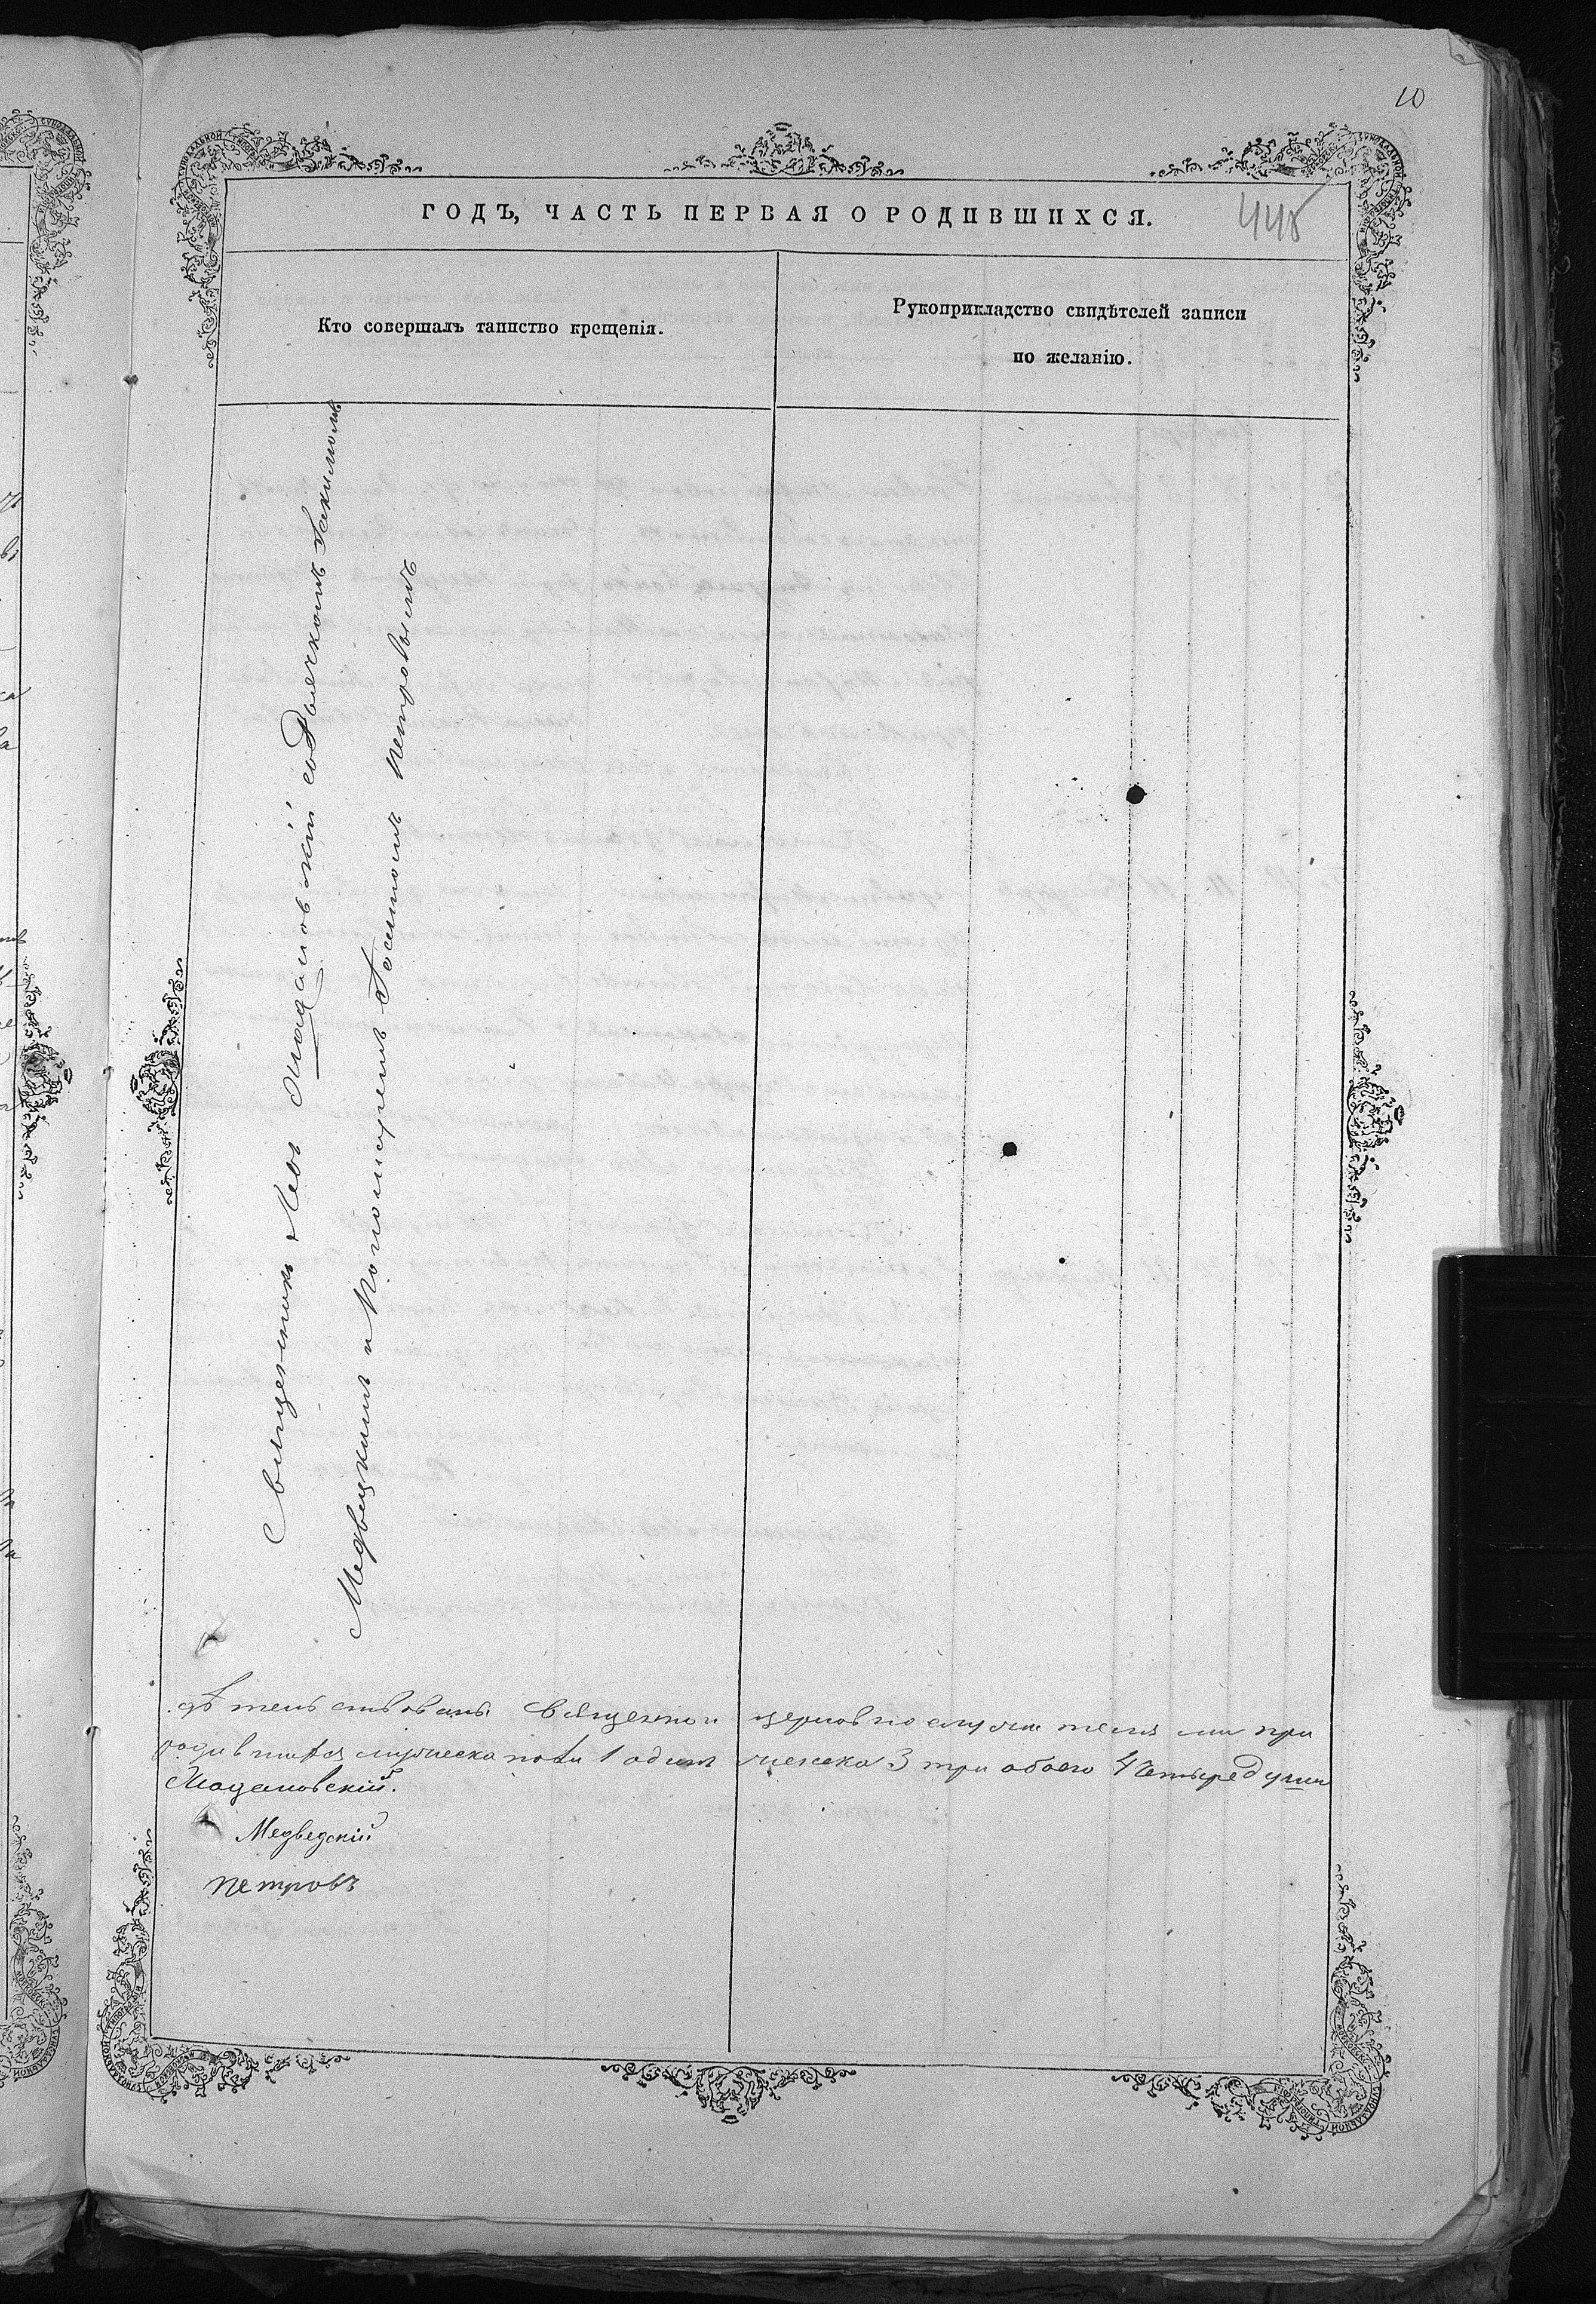 10
ГОДЪ, ЧАСТЬ ПЕРВАЯ О РОДИВШИХСЯ.
445
Кто совершалъ таинство крещенія.
Рукоприкладство свидѣтелей записи
по желанію.
Священникъ Левъ Мадановскій съ Дьячкомъ Іакимомъ
Медвецкимъ и Пономаремъ Іосипомъ Петровымъ
священно и церковно служители при
родившихся мужеска пола 1 одинъ женска 3 три обоего 4 Четыре души
Мадановскій.
Медведскій
Петровъ